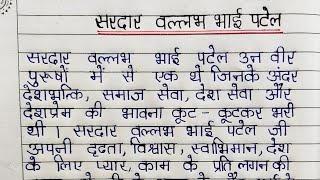 सरदार वल्लभ भाई पटेल
सरदार वल्लभ भाई पटेल उन वीर
पुरूषों में से एक थे जिनके अंदर
देशभक्ति, समाज सेवा, देश सेवा और
देशप्रेम की भावना कूट-कूटकर भरी
थी। सरदार वल्लभ भाई पटेल जी
अपनी दृढता, विश्वास, स्वाभिमान, देश
के लिए प्यार, काम के प्रति लगन की